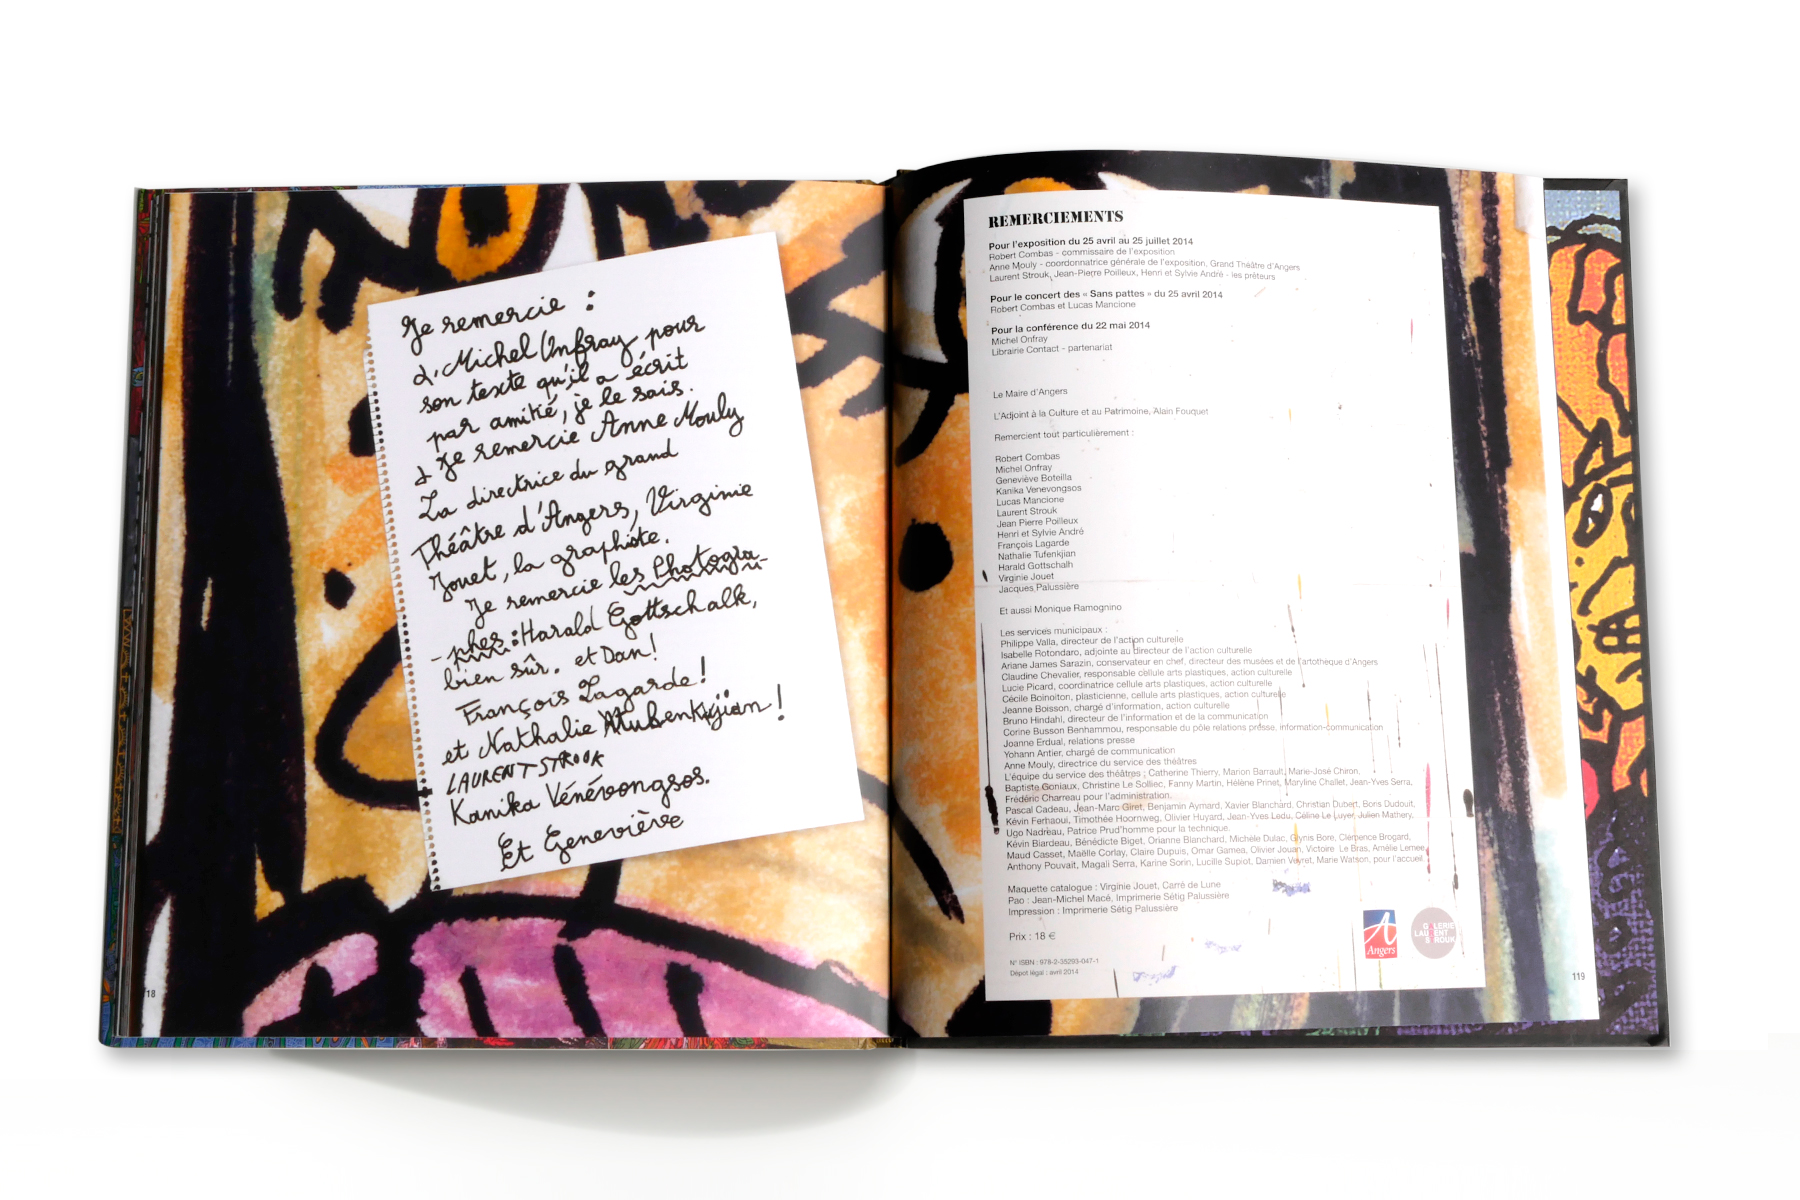 Je remercie :
d. Michel Onfray pour
son texte qu'il a écrit
par amitié, je le sais.
& Je remercie Anne Mouly
La directrice du grand
Théâtre d'Angers, Virginie
Jouet, la graphiste.
Je remercie les Photogra-
-phes : Harald Gottschalk,
bien sûr. et Dan !
François Lagarde !
et Nathalie
LAURENT STROOK
Kanika Vénévongsos.
Et Geneviève
18
REMERCIEMENTS
Pour l'exposition du 25 avril au 25 juillet 2014
Robert Combas - commissaire de l'exposition
Anne Mouly - coordonnatrice générale de l'exposition, Grand Théâtre d'Angers
Laurent Strouk, Jean-Pierre Poilleux, Henri et Sylvie André - les prêteurs
Pour le concert des « Sans pattes » du 25 avril 2014
Robert Combas et Lucas Mancione
Pour la conférence du 22 mai 2014
Michel Onfray
Librairie Contact - partenariat
Le Maire d'Angers
L'Adjoint à la Culture et au Patrimoine, Alain Fouquet
Remercient tout particulièrement :
Robert Combas
Michel Onfray
Geneviève Boteilla
Kanika Venevongsos
Lucas Mancione
Laurent Strouk
Jean Pierre Poilleux
Henri et Sylvie André
François Lagarde
Nathalie Tufenkjian
Harald Gottschalh
Virginie Jouet
Jacques Palussière
Et aussi Monique Ramognino
Les services municipaux :
Philippe Valla, directeur de l'action culturelle
Isabelle Rotondaro, adjointe au directeur de l'action culturelle
Ariane James Sarazin, conservateur en chef, directeur des musées et de l'artothèque d'Angers
Claudine Chevalier, responsable cellule arts plastiques, action culturelle
Lucie Picard, coordinatrice cellule arts plastiques, action culturelle
Cécile Boinoiton, plasticienne, cellule arts plastiques, action culturelle
Jeanne Boisson, chargé d'information, action culturelle
Bruno Hindahl, directeur de l'information et de la communication
Corine Busson Benhammou, responsable du pôle relations presse, information-communication
Joanne Erdual, relations presse
Yohann Antier, chargé de communication
Anne Mouly, directrice du service des théâtres
L'équipe du service des théâtres : Catherine Thierry, Marion Barrault, Marie-José Chiron,
Baptiste Goniaux, Christine Le Solliec, Fanny Martin, Hélène Prinet, Maryline Challet, Jean-Yves Serra,
Frédéric Charreau pour l'administration.
Pascal Cadeau, Jean-Marc Giret, Benjamin Aymard, Xavier Blanchard, Christian Dubert, Boris Dudouit,
Kévin Ferhaoui, Timothée Hoornweg, Olivier Huyard, Jean-Yves Ledu, Céline Le Luyer, Julien Mathery,
Ugo Nadreau, Patrice Prud'homme pour la technique.
Kévin Biardeau, Bénédicte Biget, Orianne Blanchard, Michèle Dulac, Glynis Bore, Clemence Brogard,
Maud Casset, Maëlle Corlay, Claire Dupuis, Omar Gamea, Olivier Jouan, Victoire Le Bras, Amélie Lemee
Anthony Pouvait, Magali Serra, Karine Sorin, Lucille Supiot, Damien Veyret, Marie Watson, pour l'accueil.
Maquette catalogue : Virginie Jouet, Carré de Lune
Pao : Jean-Michel Macé, Imprimerie Sétig Palussière
Impression : Imprimerie Sétig Palussière
Prix : 18 €
N° ISBN : 978-2-35293-047-1
Dépot légal : avril 2014
A
Angers
GALERIE
LAURENT
STROUK
119